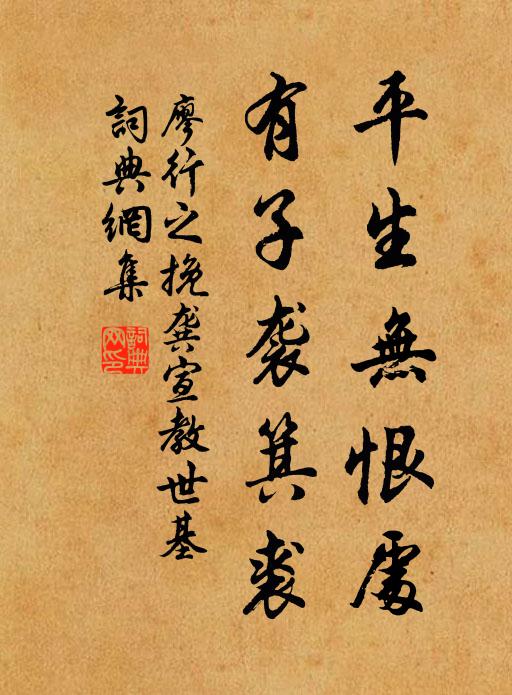 平生無恨處
有子袭箕裘
廖行之挽龚宣教世基
詞典網集
詞典网印